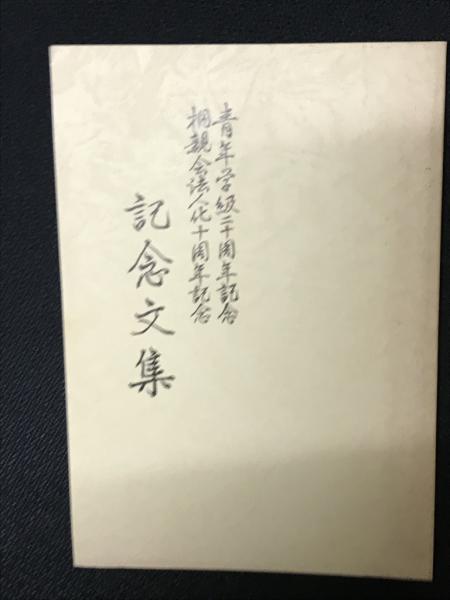 青年学級二十周年記念
桐親会法人化十周年記念
記念文集